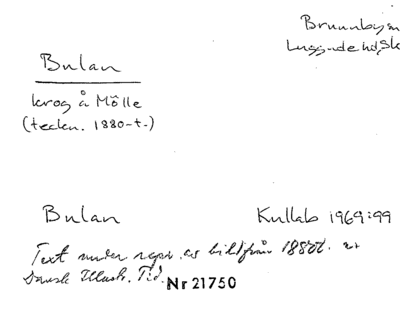 Brunnby sn
Luggude hd, Sk
Bulan
krog å Mölle
(teckn. 1880-t.)
Bulan Kullab 1969:99
Text under repr. av bild från 1880t. ur
Dansk Illustr. Tid. Nr 21750